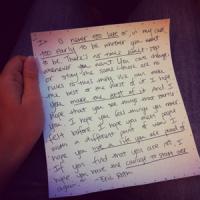 It is never too late or, in my case,
too early to be whoever you want
to be. There's no time limit, stop
whenever you want. You can change
or stay the same, there are no
rules to this thing. We can make
the best or the worst of it. I hope
you make the best of it. and I
hope that you see things that startle
you. I hope you feel things you never
felt before. I hope you meet people
with a different point of view. I
hope you live a life you are proud of.
If you find that you are not, I
hope you have the courage to start over
again. - Eric Roth